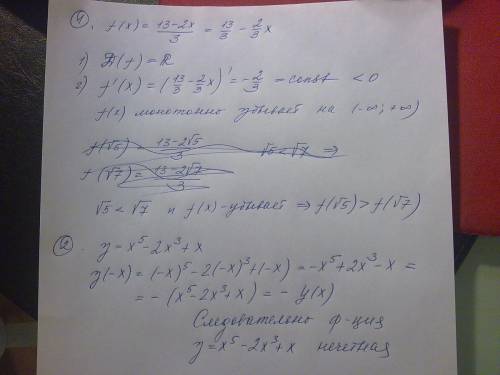 4. f(x) = (13-2x)/3 = 13/3 - 2/3 x
1) D(f) = R
2) f'(x) = (13/3 - 2/3 x)' = -2/3 = const < 0
f(x) монотонно убывает на (-∞; +∞)
f(√5) = (13-2√5)/3 √5 < √7 ⇒
f(√7) = (13-2√7)/3
√5 < √7 и f(x)-убывает ⇒ f(√5) > f(√7)
12. y = x⁵ - 2x³ + x
y(-x) = (-x)⁵ - 2(-x)³ + (-x) = -x⁵ + 2x³ - x =
= - (x⁵ - 2x³ + x) = - y(x)
Следовательно ф-ция
y = x⁵ - 2x³ + x нечетная